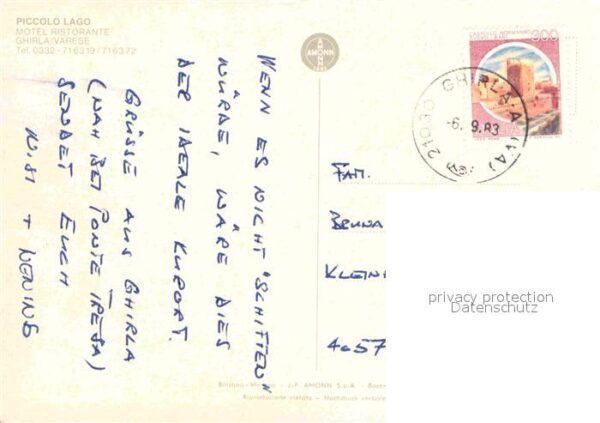 PICCOLO LAGO
MOTEL RISTORANTE
GHIRLA/VARESE
Tel. 0332 - 716319 / 716372
AMONN
300
GHIRLA
21030
(VA)
-6. 9. 83
WENN ES NICHT "SCHIFFEN"
WÜRDE, WÄRE DIES
DER IDEALE KURORT.
GRÜSSE AUS GHIRLA
(NAH BEI PONTE TRESA)
SENDET EUCH
+ NENING
FAM.
BRUNA
KLEIN
4057
privacy protection
Datenschutz
J.F. AMONN S.p.A.
Riproduzione vietata